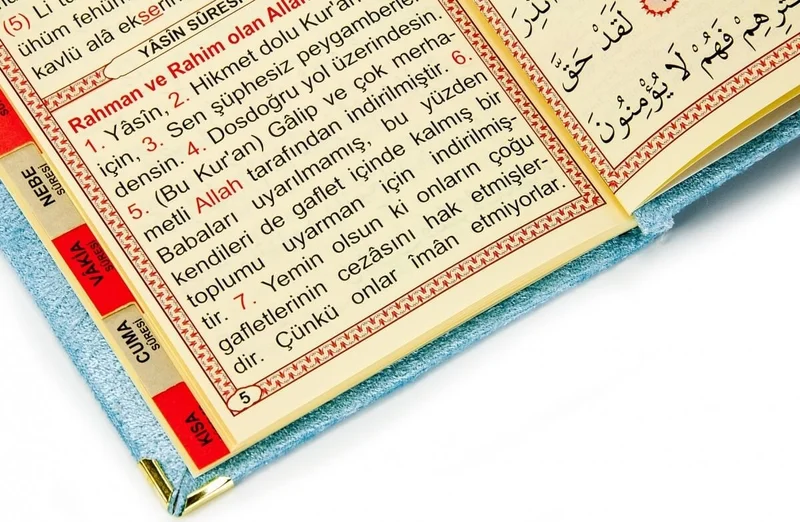 (5) Li
ühüm
kavlü alâ ekse
YÂSİN SÛRESİ
Rahman ve Rahim olan Allah
1. Yâsîn, 2. Hikmet dolu Kur'an
için, 3. Sen şüphesiz peygamberler
densin. 4. Dosdoğru yol üzerindesin.
5. (Bu Kur'an) Gâlip ve çok merha-
metli Allah tarafından indirilmiştir. 6.
Babaları uyarılmamış, bu yüzden
kendileri de gaflet içinde kalmış bir
toplumu uyarman için indirilmiş-
tir. 7. Yemin olsun ki onların çoğu
gafletlerinin cezâsını hak etmişler-
dir. Çünkü onlar îmân etmiyorlar.
5
NEBE
SÛRESİ
VÂKIA
SÛRESİ
CUMA
SÛRESİ
KISA
لَقَدْ حَقَّ
فَهُمْ لَا يُؤْمِنُونَ